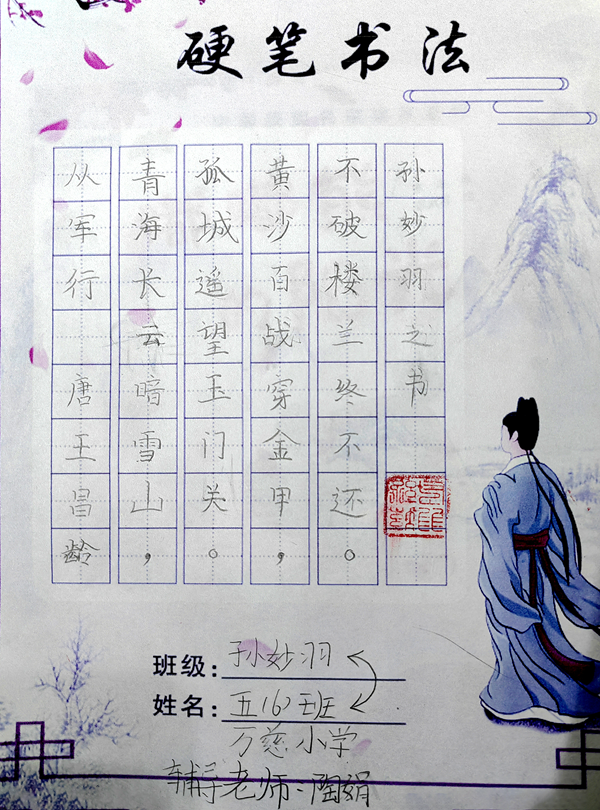 硬笔书法
从军行 唐王昌龄
青海长云暗雪山，
孤城遥望玉门关。
黄沙百战穿金甲，
不破楼兰终不还。
孙妙羽之书
班级：孙妙羽
姓名：五(6)班
万慈小学
辅导老师：陶娟